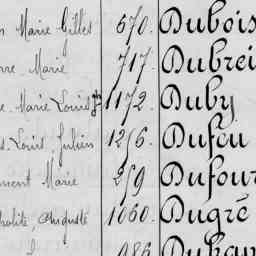 Marie Gilles 670. Dubois
Marie 717. Dubrei
Marie Louis 1172. Duby
Louis Julien 1256. Dufeu
Marie 259. Dufour
Auguste 1060. Dugré
986